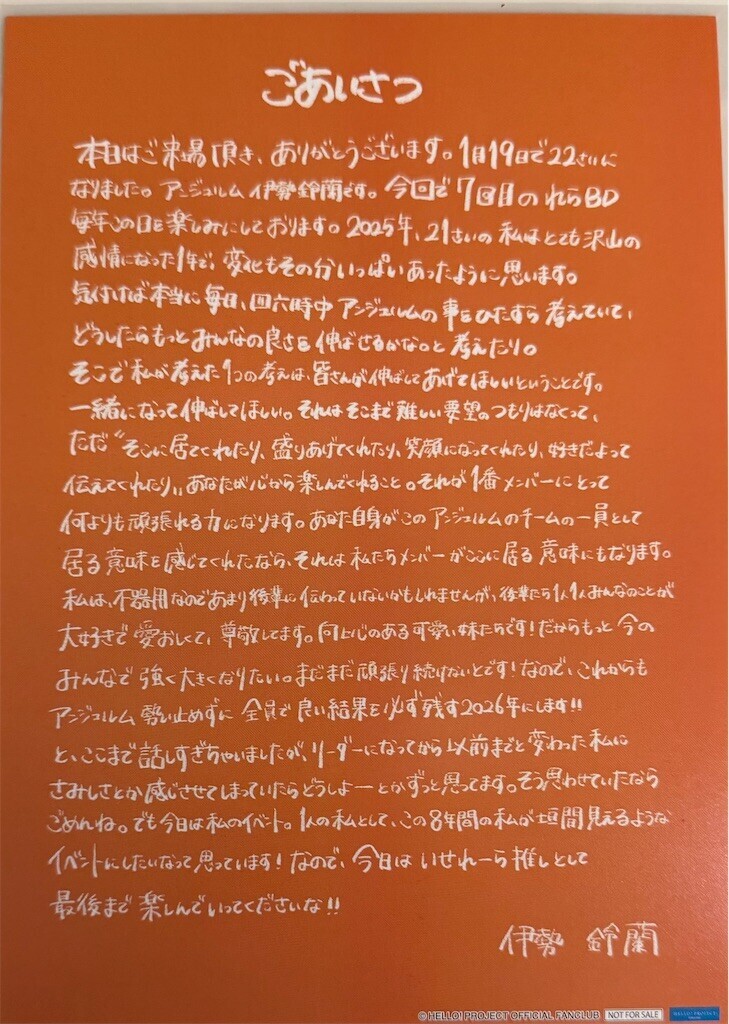 ごあいさつ
本日はご来場頂き、ありがとうございます。1月19日で22さいに
なりました。アンジュルム 伊勢鈴蘭です。今回で7回目のれらBD
毎年この日を楽しみにしております。2025年、21さいの私はとても沢山の
感情になった1年で、変化もその分いっぱいあったように思います。
気付けば本当に毎日、四六時中アンジュルムの事をひたすら考えていて、
どうしたらもっとみんなの良さを伸ばせるかな。と考えたり。
そこで私が考えた1つの考えは、皆さんが伸ばしてあげてほしいということです。
一緒になって伸ばしてほしい。それはそこまで難しい要望のつもりはなくって、
ただ〝そこに居てくれたり、盛りあげてくれたり、笑顔になってくれたり、好きだよって
伝えてくれたり〟あなたが心から楽しんでくれること。それが1番メンバーにとって
何よりも頑張れる力になります。あなた自身がこのアンジュルムのチームの一員として
居る意味を感じてくれたなら、それは私たちメンバーがここに居る意味にもなります。
私は、不器用なのであまり後輩に伝わっていないかもしれませんが、後輩たち1人1人みんなのことが
大好きで愛おしくて、尊敬してます。向上心のある可愛い妹たちです!だからもっと今の
みんなで強く大きくなりたい。まだまだ頑張り続けないとです!なので、これからも
アンジュルム勢い止めずに全員で良い結果を必ず残す2026年にします!!
と、ここまで話しすぎちゃいましたが、リーダーになってから以前までと変わった私に
さみしさとか感じさせてしまっていたらどうしよーとかずっと思ってます。そう思わせていたなら
ごめんね。でも今日は私のイベント。1人の私として、この8年間の私が垣間見えるような
イベントにしたいなって思っています!なので、今日はいせれーら推しとして
最後まで楽しんでいってくださいな!!
伊勢 鈴蘭
© HELLO! PROJECT OFFICIAL FANCLUB NOT FOR SALE HELLO! PROJECT